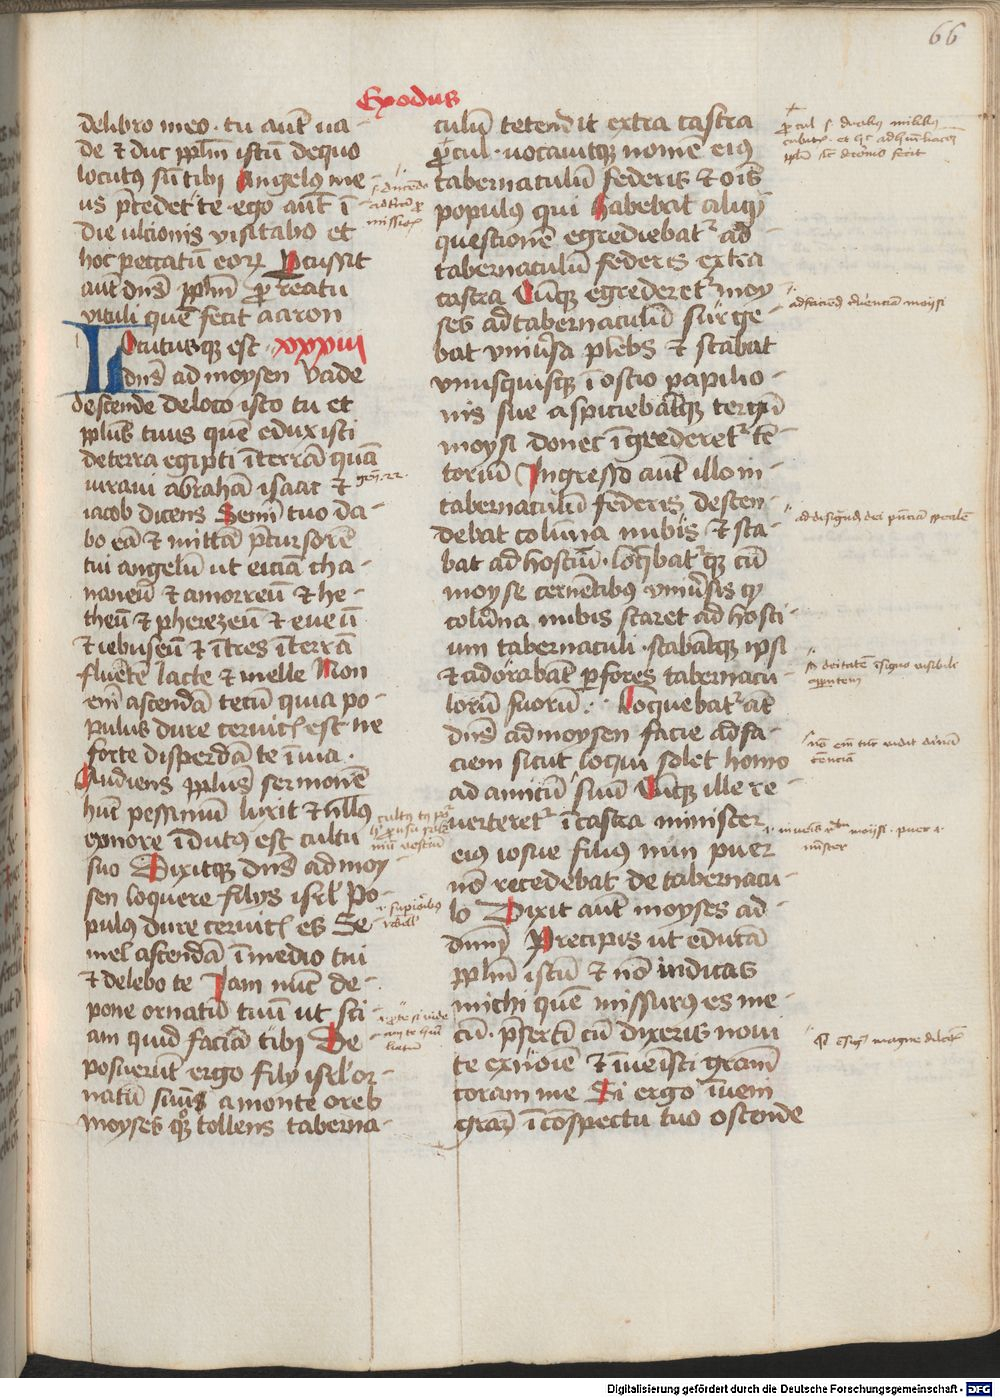 66
Exodus
de libro meo · tu aut̄ va-
de ⁊ duc ppl̄m istū de quo
locutꝰ sū tibi Angelꝰ me-
us p̄cedet te · ego aut̄ ī
die ulcionis visitabo et
hoc peccatū eoꝝ Percussit
aut̄ dn̄s ppl̄m ꝓ reatu
vituli quē fecit aaron
Locutusqꝫ est · xxxiii
dn̄s ad moysen Vade
descende de loco isto tu et
ppl̄us tuus quē eduxisti
de terra egipti ī terrā quā
iuraui abrahā isaac ⁊
iacob dicens Semī tuo da-
bo eā ⁊ mittā p̄cursorē
tui angelū ut eiciā cha-
naneū ⁊ amorreū ⁊ he-
theū ⁊ pherezeū ⁊ eueū
⁊ iebuseū ⁊ ītres ī terrā
fluētē lacte ⁊ melle Non
em̄ ascendā tecū quia po-
pulus dure ceruic̄ est ne
forte disperdā te ī via ·
Audiens ppl̄us sermonē
hūc pessimum luxit ⁊ nullꝰ
ex more īdutꝰ est cultu
suo Dixitqꝫ dn̄s ad moy-
sen loquere filys isrl̄ Po-
pulus dure ceruic̄ es Se-
mel ascendā ī medio tui
⁊ delebo te Iam nūc de-
pone ornatū tuū ut sci-
am quid faciā tibi De-
posuerūt ergo fily isrl̄ or-
natū suū a monte oreb
moyses qͦꝫ tollens taberna-
gen̄. 22
culū tetendit extra castra
ꝓcul · uocauitqꝫ nomē eiꝰ
tabernaculū federis ⁊ oīs
populꝰ qui habebat aliq̄
questionē egrediebat᷑ ad
tabernaculū federis extra
castra Cūqꝫ egrederet᷑ moy-
ses ad tabernaculū surge-
bat vniūsa plebs ⁊ stabat
vnusquisqꝫ ī ostio papilio-
nis sue aspiciebātqꝫ tergū
moysi donec īgrederet᷑ tē-
toriū Ingresso aut̄ illo in-
tabernaculū federis descen-
debat colūna nubis ⁊ sta-
bat ad hostiū · loq̄bat᷑qꝫ cū
moyse cernētibꝰ vniūsis qꝫ
colūna nubis staret ad hosti-
um tabernaculi · stabātqꝫ ipsi
⁊ adorabāt ꝑ fores tabernacu-
lorū suorū · Loquebat᷑ aūt
dn̄s ad moysen facie ad fa-
ciem sicut loqui solet homo
ad amicū suū Cūqꝫ ille re-
uerteret᷑ ī castra minister
eiꝰ iosue filiꝰ nun puer
nō recedebat de tabernacu-
lo Dixit aut̄ moyses ad
dn̄m Precipis ut educā
ppl̄m istū ⁊ nō indicas
michi quē missurꝰ es me-
cū · p̄sertī cū dixeris noui
te ex noīe ⁊ īuenisti gr̄am
coram me Si ergo īueni
gr̄aꝫ ī cōspectu tuo ostende
Digitalisierung gefördert durch die Deutsche Forschungsgemeinschaft - DFG